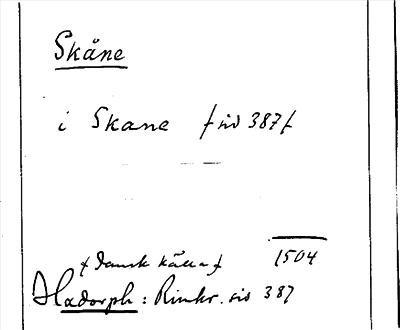 Skåne
i Skane f sid 387 f
1504
f Dansk källa f
Hadorph: Rimkr. sid 387